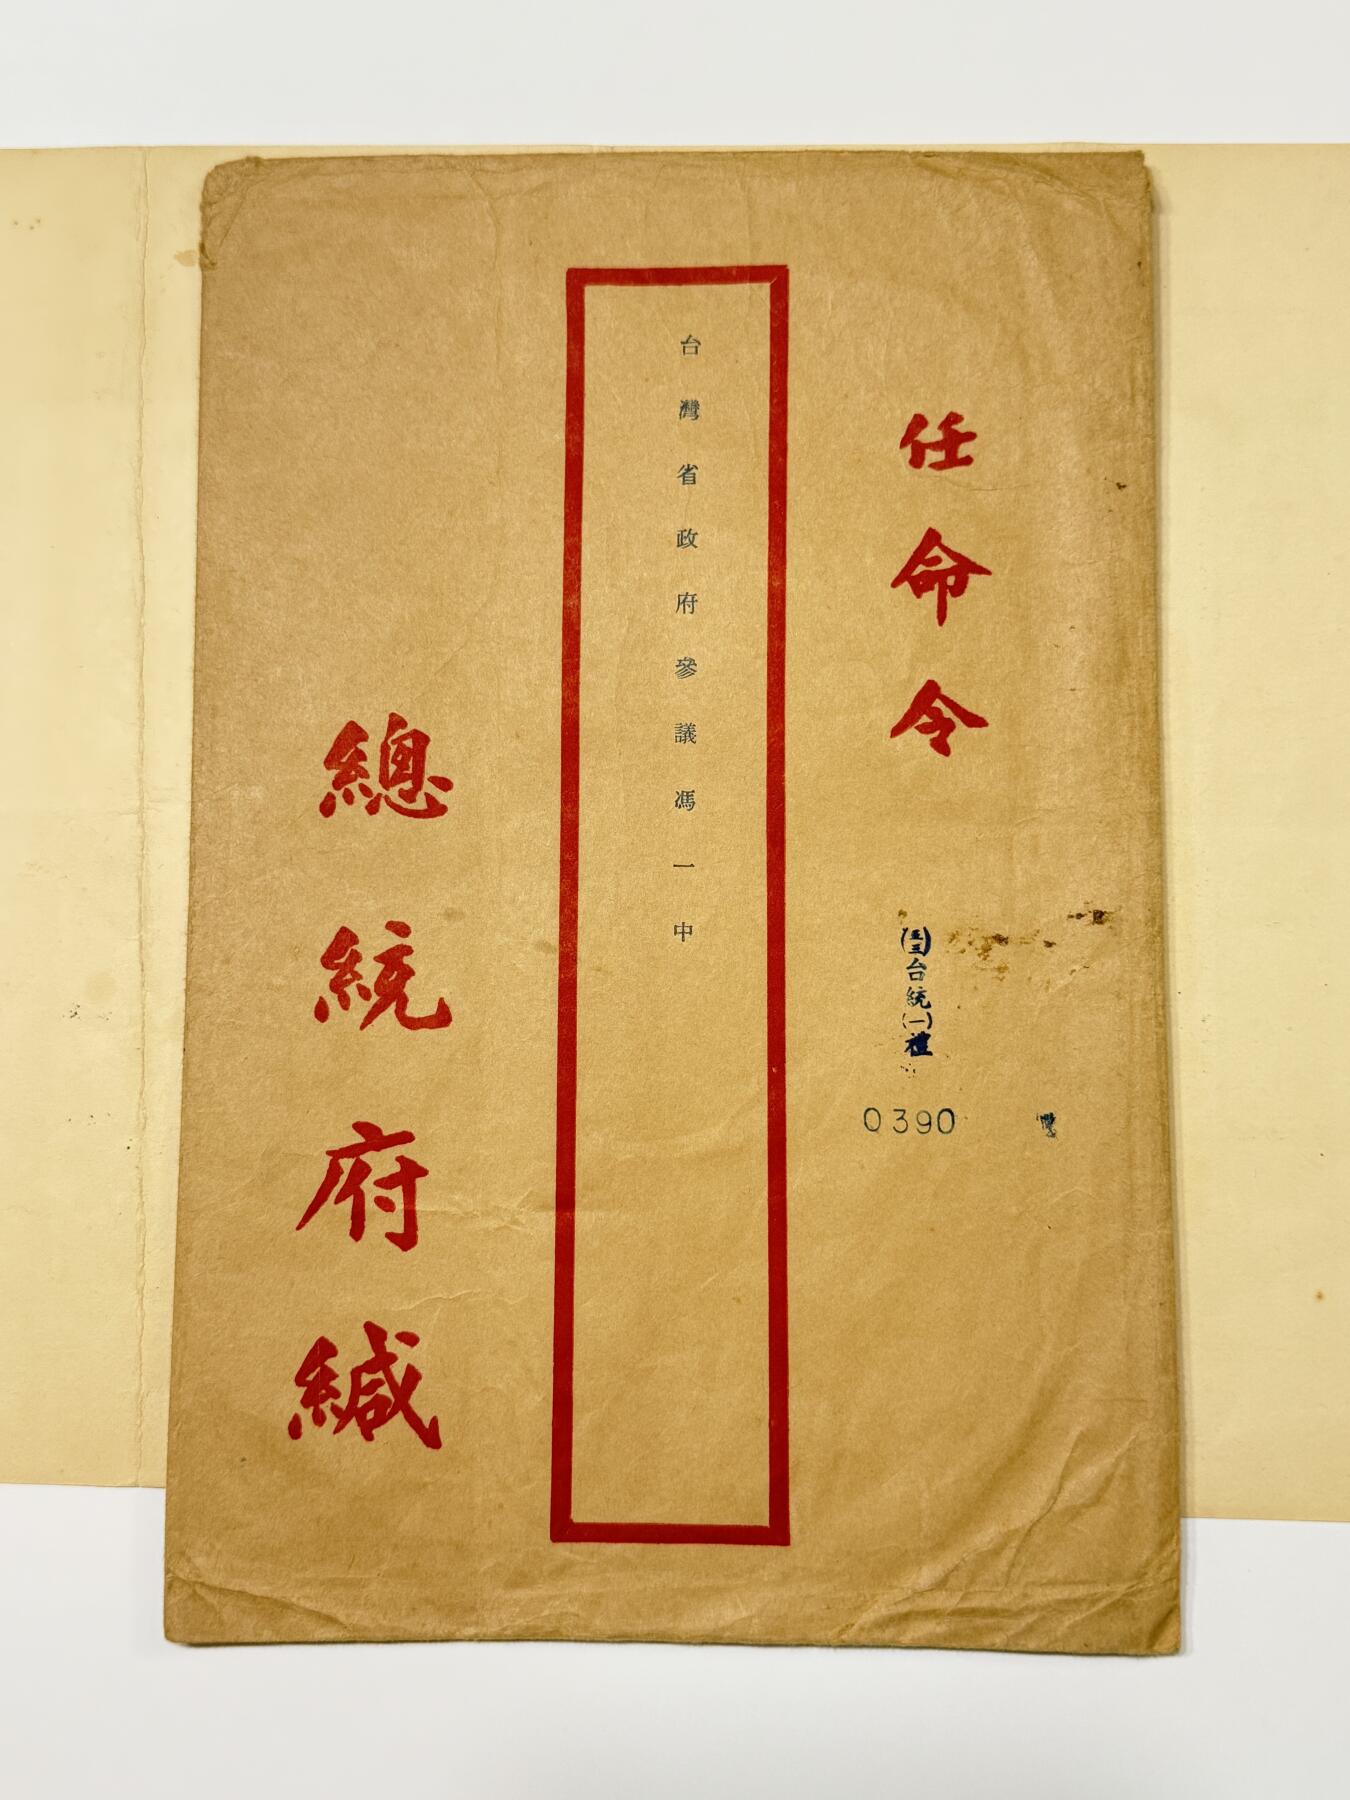 任命令
(五三)台統(一)禮
0390
台灣省政府參議馮一中
總統府緘